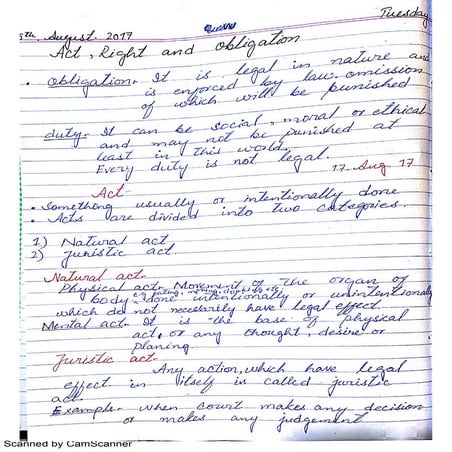 Tuesday
5th. August. 2017
Act, Right and obligation
• obligation. It is legal in nature and
is enforced by law. omission
of which will be punished
duty- It can be social, moral or ethical
and may not be punished at
least in this world.
Every duty is not legal.
17 Aug 17
Act-
• Something usually or intentionally done
• Acts are divided into two categories.
1) Natural act
2) juristic act
Natural act-
Physical act- Movement of the organ of
body, done intentionally or unintentionaly
which do not necessarily have legal effect.
Mental act- It is the base of physical
act, or any thought, desire or
planing.
Juristic act-
Any action, which have legal
effect in itself is called juristic
act.
Example- when court makes any decision
or makes any judgement
Scanned by CamScanner